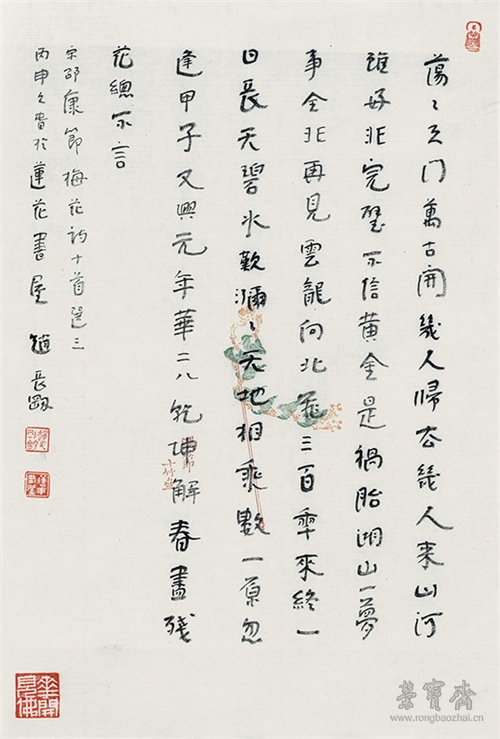 蕩〻天門萬古開幾人歸去幾人来山河
雖好非完璧不信黃金是禍胎湖山一夢
事全非再見雲龍向北飛三百年來終一
日長天碧水歎瀰〻天地相乘數一原忽
逢甲子又興元年華二八乾坤解春盡殘
花總不言
宋邵康節梅花詩十首選三
丙申 於蓮花書屋 趙長剛
華開見佛
榮寶齋
www.rongbaozhai.cn